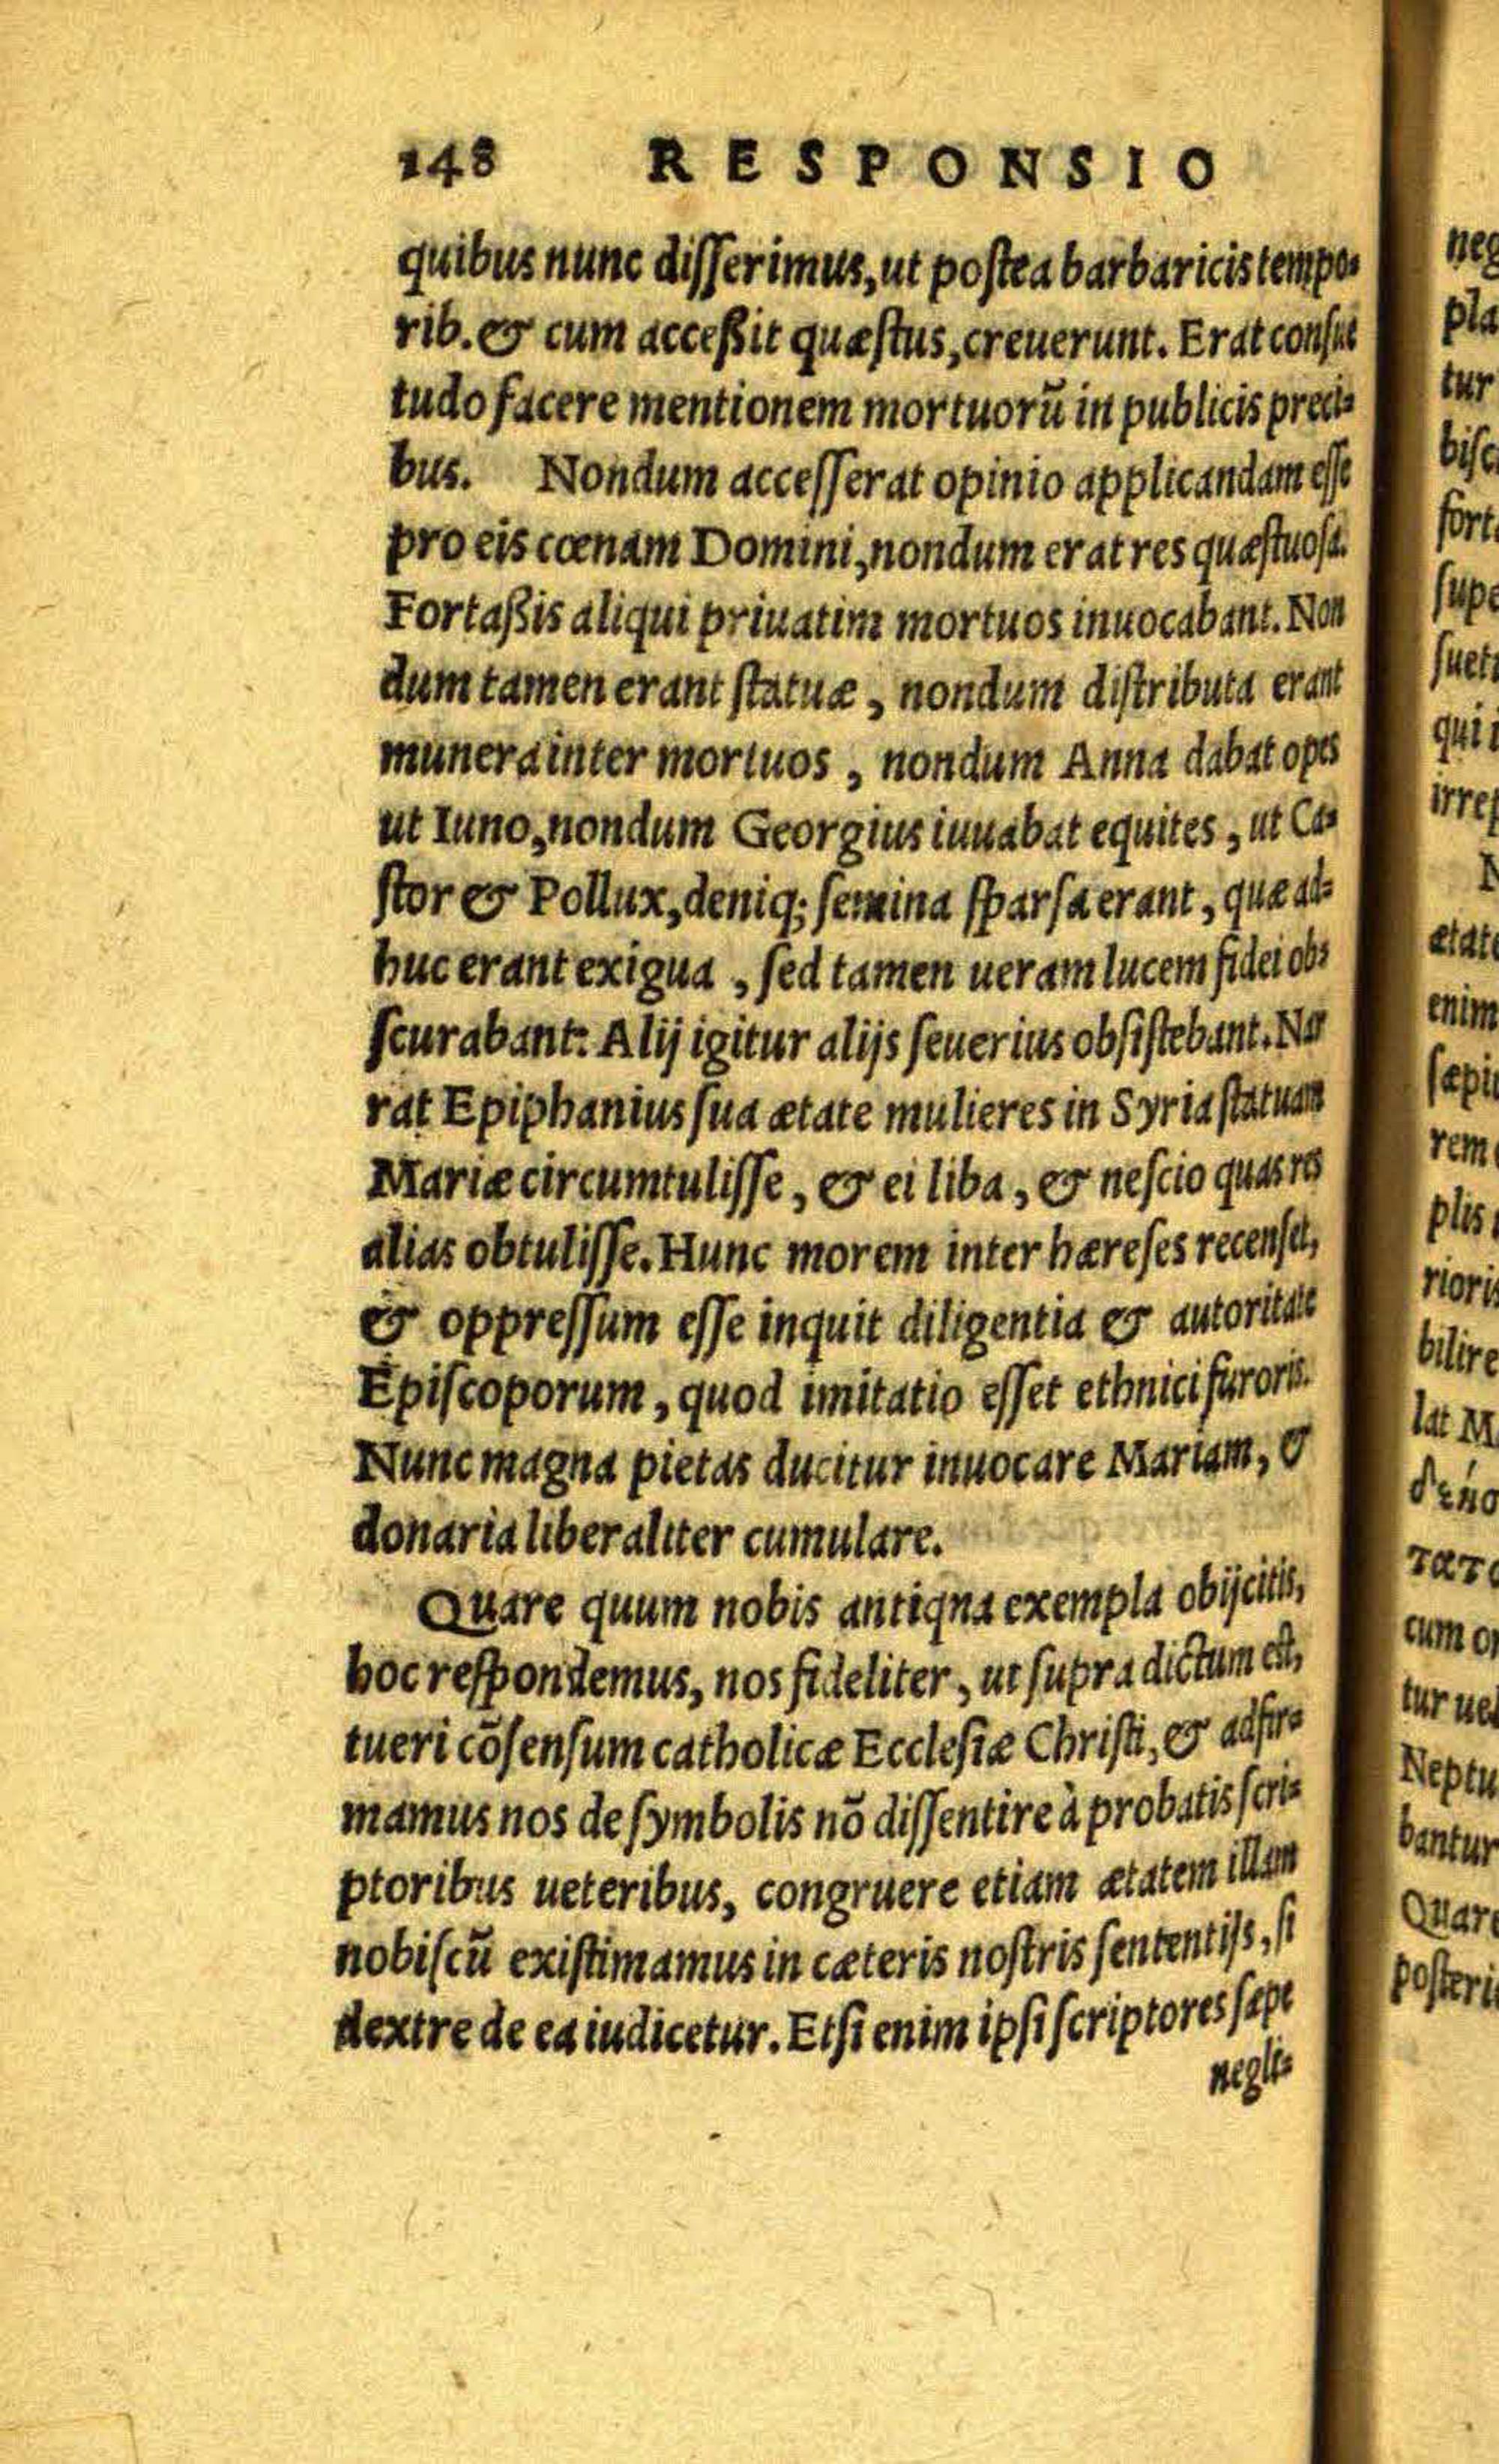 148 RESPONSIO
quibus nunc disserimus, ut postea barbaricis tempo-
rib. & cum acceßit quæstus, creuerunt. Erat consue
tudo facere mentionem mortuorũ in publicis preci-
bus. Nondum accesserat opinio applicandam esse
pro eis cœnam Domini, nondum erat res quæstuosa.
Fortaßis aliqui priuatim mortuos inuocabant. Non
dum tamen erant statuæ, nondum distributa erant
munera inter mortuos, nondum Anna dabat opes
ut Iuno, nondum Georgius iuuabat equites, ut Ca-
stor & Pollux, deniq; semina sparsa erant, quæ ad-
huc erant exigua, sed tamen ueram lucem fidei ob-
scurabant: Alij igitur alijs seuerius obsistebant. Nar
rat Epiphanius sua ætate mulieres in Syria statuam
Mariæ circumtulisse, & ei liba, & nescio quas res
alias obtulisse. Hunc morem inter hæreses recenset,
& oppressum esse inquit diligentia & autoritate
Episcoporum, quod imitatio esset ethnici furoris.
Nunc magna pietas ducitur inuocare Mariam, &
donaria liberaliter cumulare.
Quare quum nobis antiqna exempla obijcitis,
hoc respondemus, nos fideliter, ut supra dictum est,
tueri cõsensum catholicæ Ecclesiæ Christi, & adfir-
mamus nos de symbolis nõ dissentire à probatis scri-
ptoribus ueteribus, congruere etiam ætatem illam
nobiscũ existimamus in cæteris nostris sententijs, si
dextre de ea iudicetur. Etsi enim ipsi scriptores sæpe
negli-
neg
pla
tur
bisc
fort
supe
suet
qui i
irrep
N
ætate
enim
sæpi
rem
plis
rioris
bilire
lat M
δεινο
τατο
cum o
tur uel
Neptu
bantur
Quare
posteri